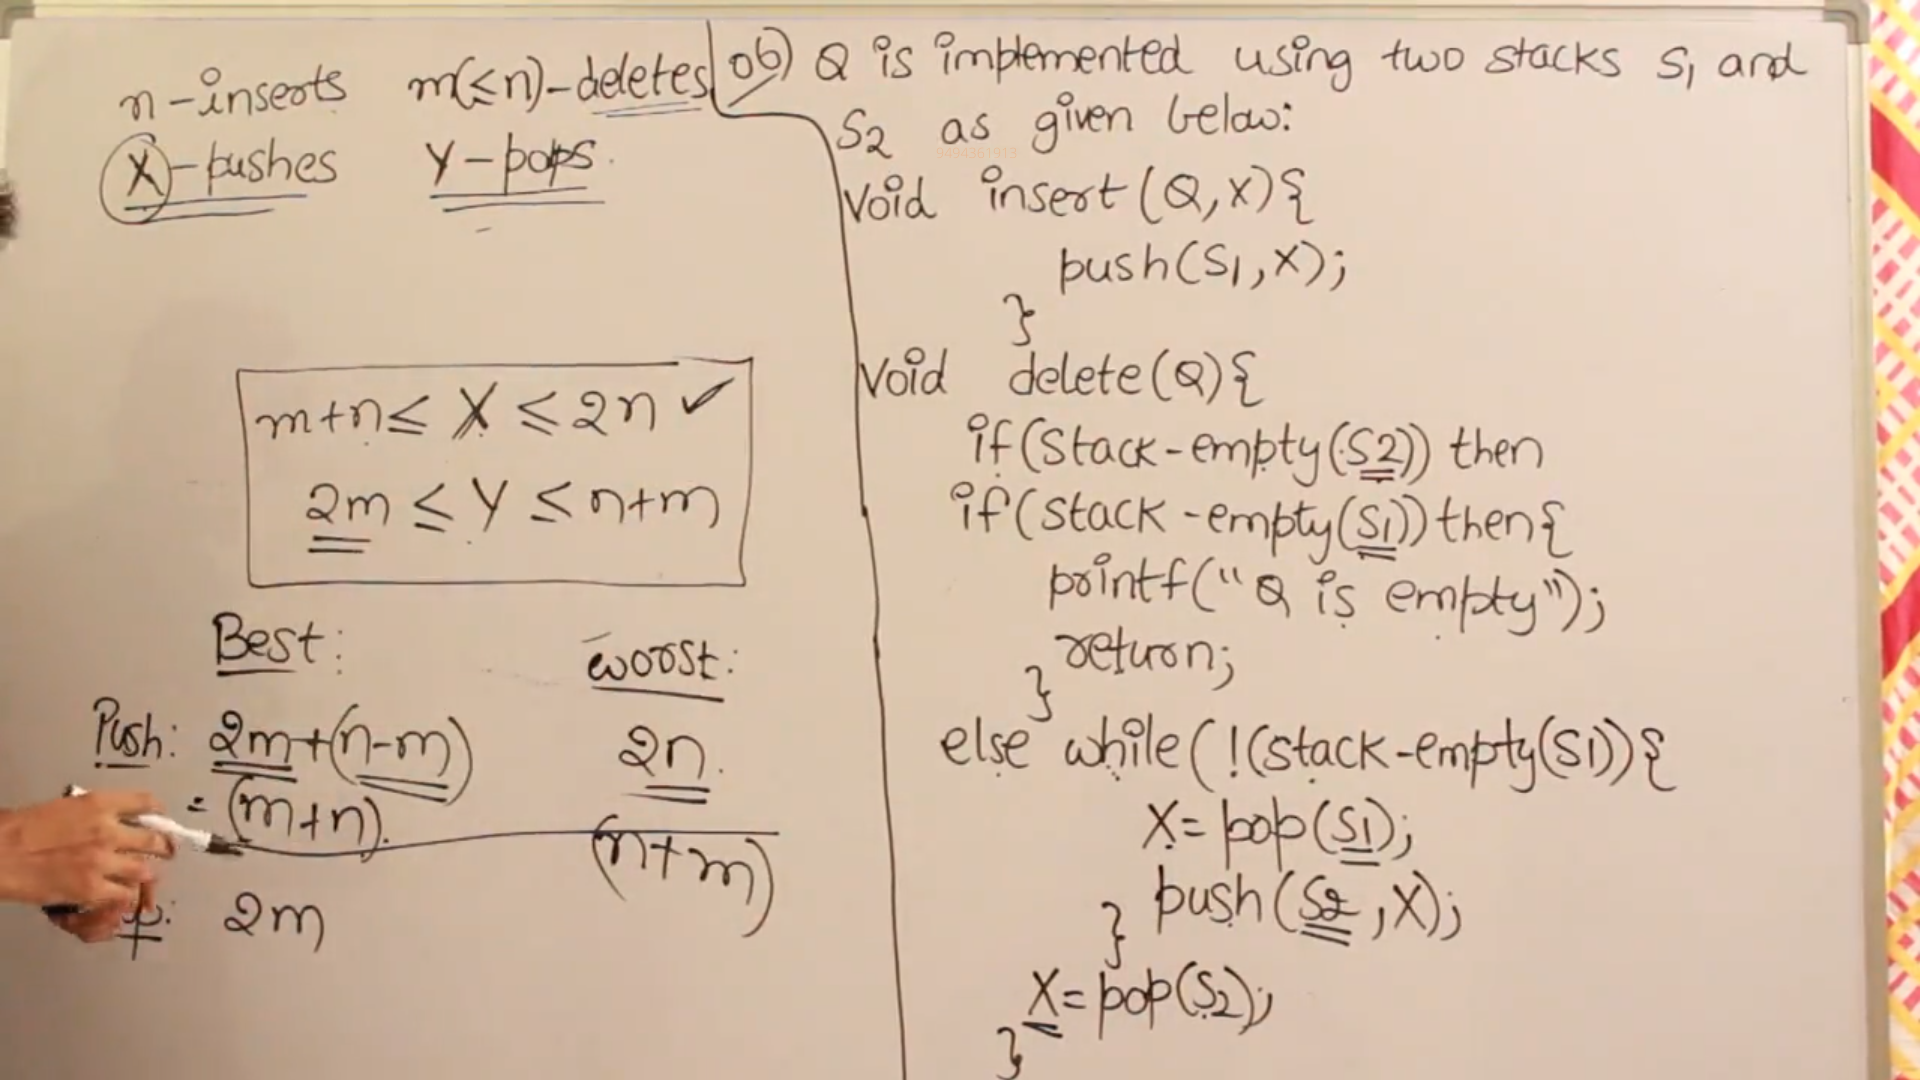 n-inserts m(≤n)-deletes
X-pushes Y-pops.
m+n ≤ X ≤ 2n ✓
2m ≤ Y ≤ n+m
Best: worst:
Push: 2m+(n-m) 2n.
= (m+n).
(n+m)
2m
06) Q is implemented using two stacks S1 and
S2 as given below:
9494361913
Void insert(Q,X){
push(S1,X);
}
Void delete(Q){
if(Stack-empty(S2)) then
if(stack-empty(S1)) then{
printf("Q is empty");
return;
}
else while(!(stack-empty(S1)){
X=pop(S1);
push(S2,X);
}
X=pop(S2);
}